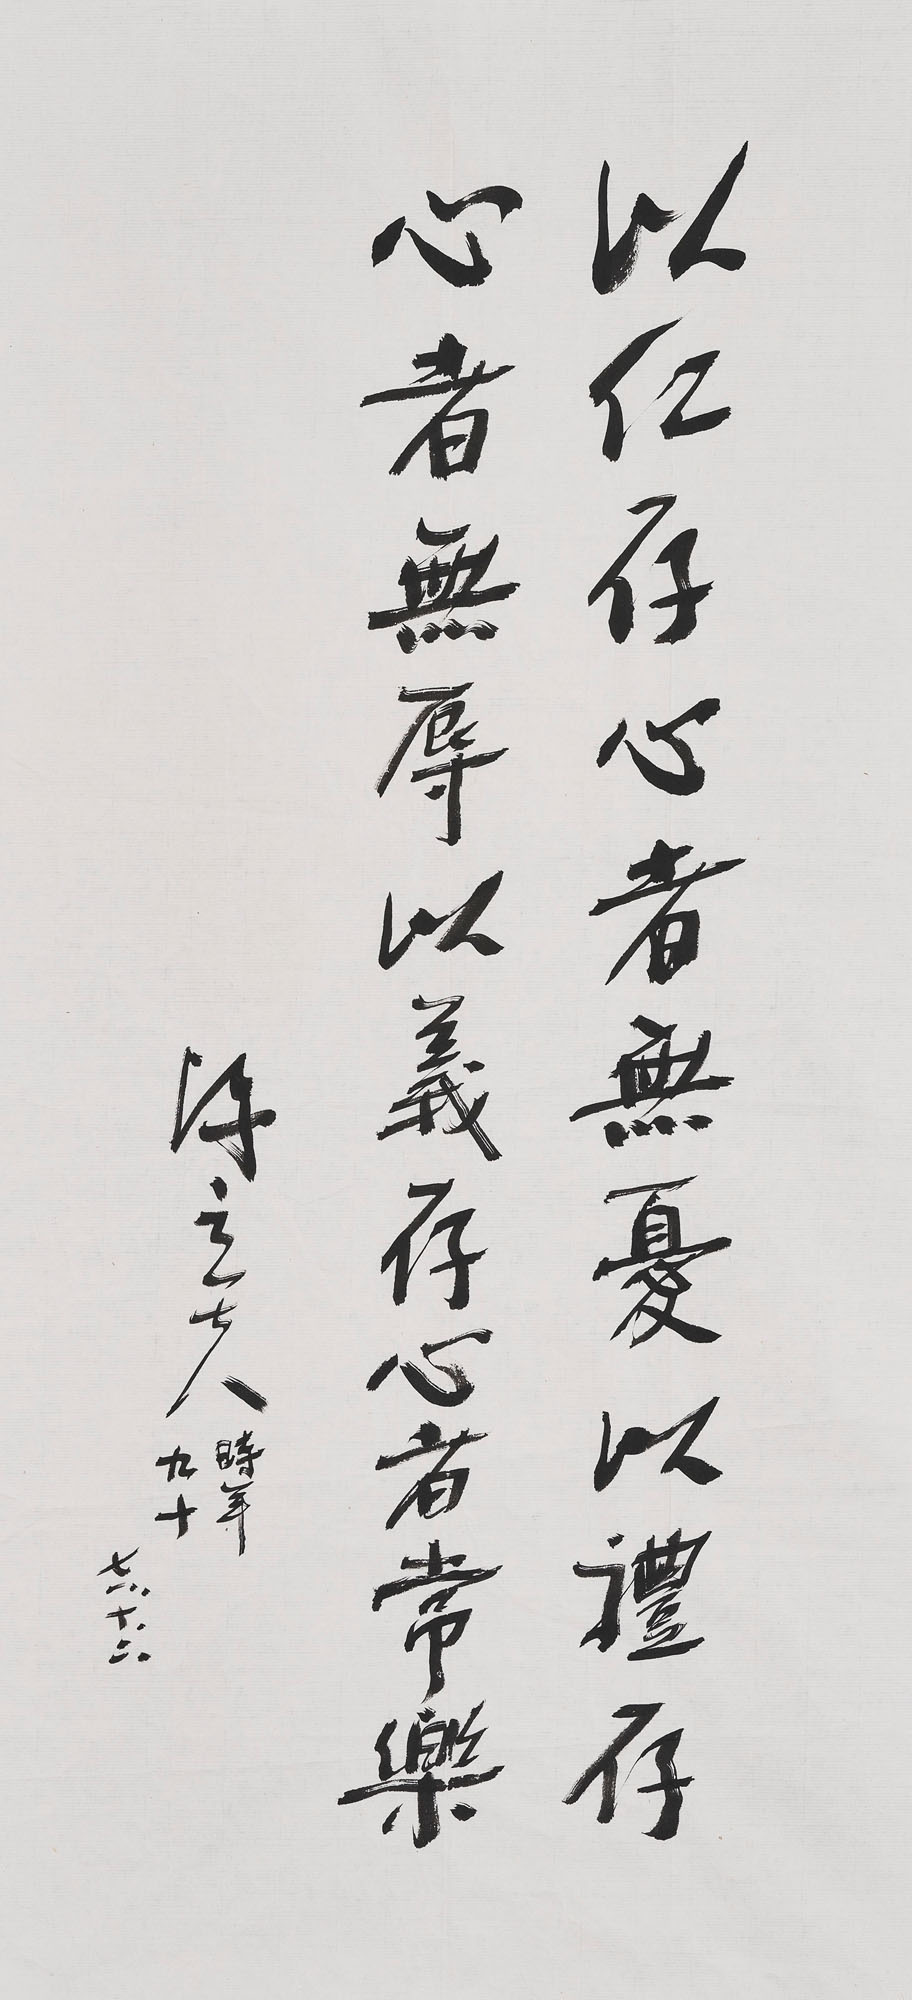 以仁存心者無憂以禮存
心者無辱以義存心者常樂
陳立夫
時年
九十
七八.十.六